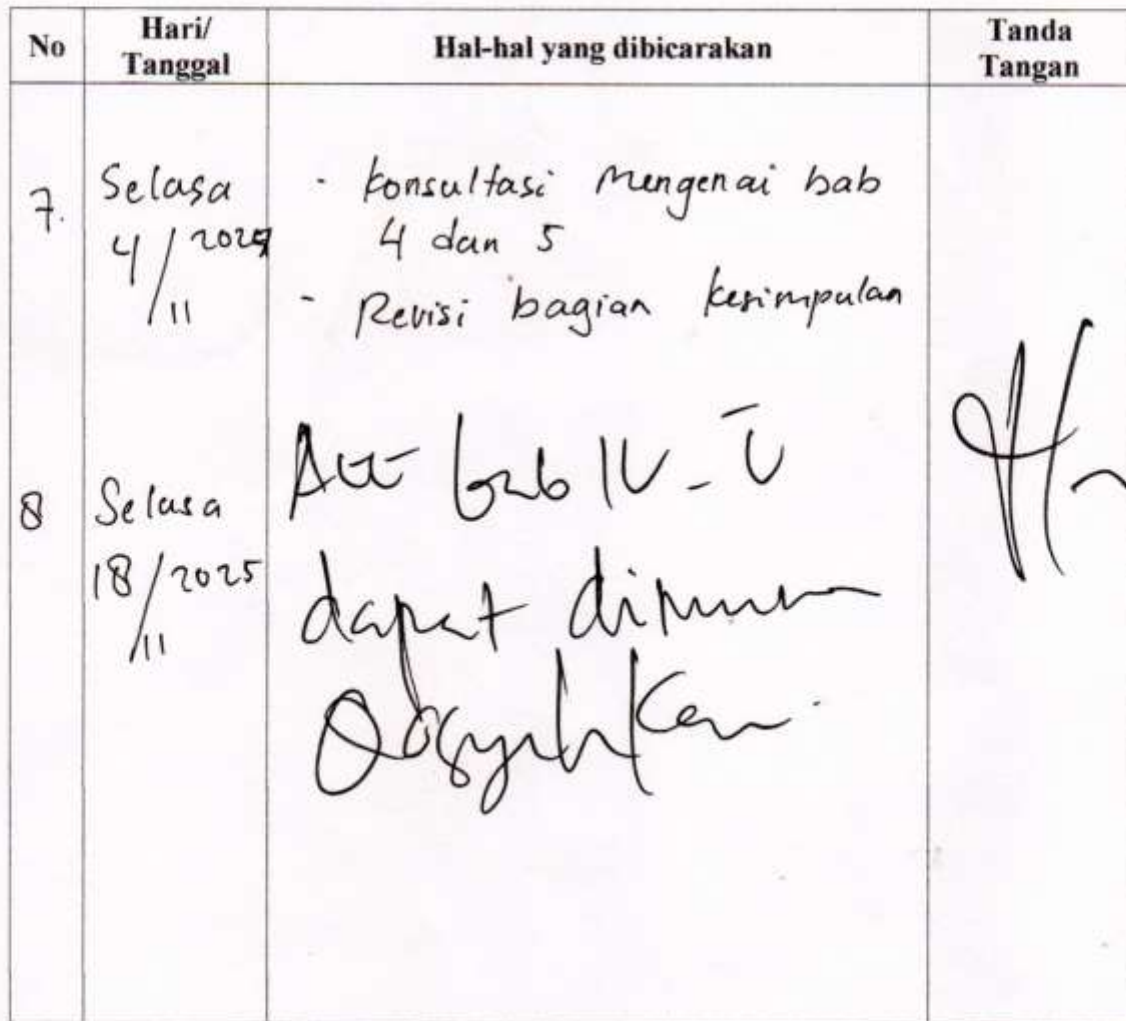 No
Hari/
Tanggal
Hal-hal yang dibicarakan
Tanda
Tangan
7.
Selasa
4/11
- konsultasi Mengenai bab
4 dan 5
- Revisi bagian kesimpulan
8
Selasa
18/2025
/11
Acc bab IV - V
dapat